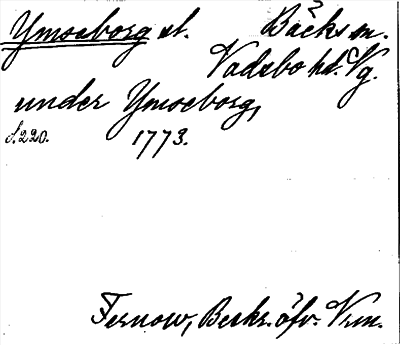 Ymseborg sl. Bäcks sn.
Vadsbo hd. Vg.
under Ymseborg,
S. 220. 1773.
Fernow, Beskr. öfv. Vrm.